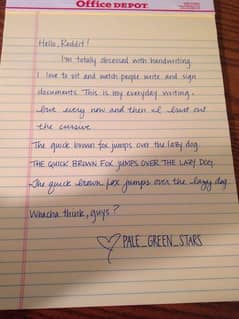 Office DEPOT
Hello, Reddit!
I'm totally obsessed with handwriting.
I love to sit and watch people write and sign
documents. This is my everyday writing,
but every now and then I bust out
the cursive.
The quick brown fox jumps over the lazy dog.
THE QUICK BROWN FOX JUMPS OVER THE LAZY DOG.
The quick brown fox jumps over the lazy dog.
Whacha think, guys?
PALE_GREEN_STARS